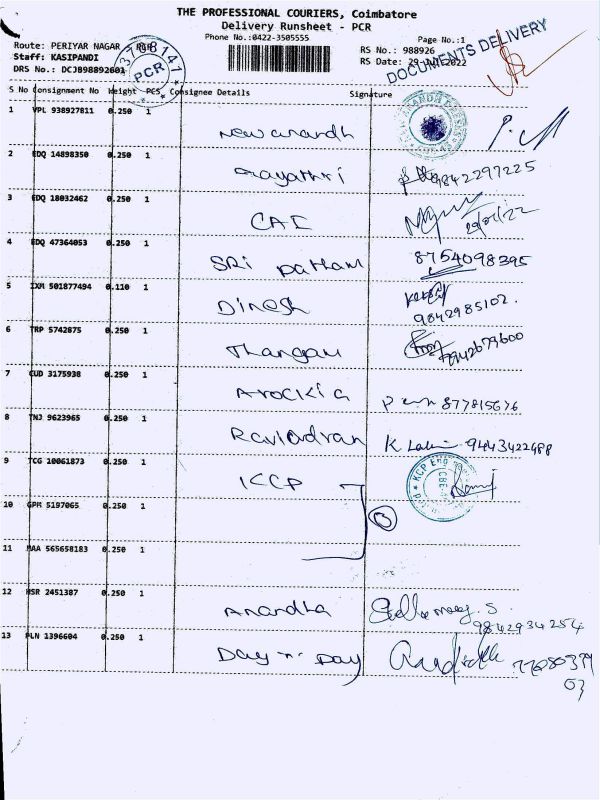 THE PROFESSIONAL COURIERS, Coimbatore
Delivery Runsheet - PCR
Phone No.:0422-3505555
Page No.:1
Route: PERIYAR NAGAR - PCR
RS No.: 988926
Staff: KASIPANDI
RS Date: 29-Jul-2022
DRS No.: DCJ898892601
DOCUMENTS DELIVERY
PCR
S No Consignment No Weight PCS Consignee Details Signature
1 VPL 938927811 0.250 1
New anandh
2 EDQ 14898350 0.250 1
Gayathri 9842297225
3 EDQ 18032462 0.250 1
CAI 29/07/22
4 EDQ 47364053 0.250 1
Sri Patham 8754098395
5 IXM 501877494 0.110 1
Dinesh
9842985102.
6 TRP 5742875 0.250 1
Thangam
7 CUD 3175938 0.250 1
Arockia 877815676
8 TNJ 9623965 0.250 1
9443422488
9 TCG 10061873 0.250 1
KCP
10 GPR 5197065 0.250 1
3
11 MAA 565658183 0.250 1
12 HSR 2451387 0.250 1
Anandha
9842934254
13 PLN 1396604 0.250 1
Day "n" Day
03